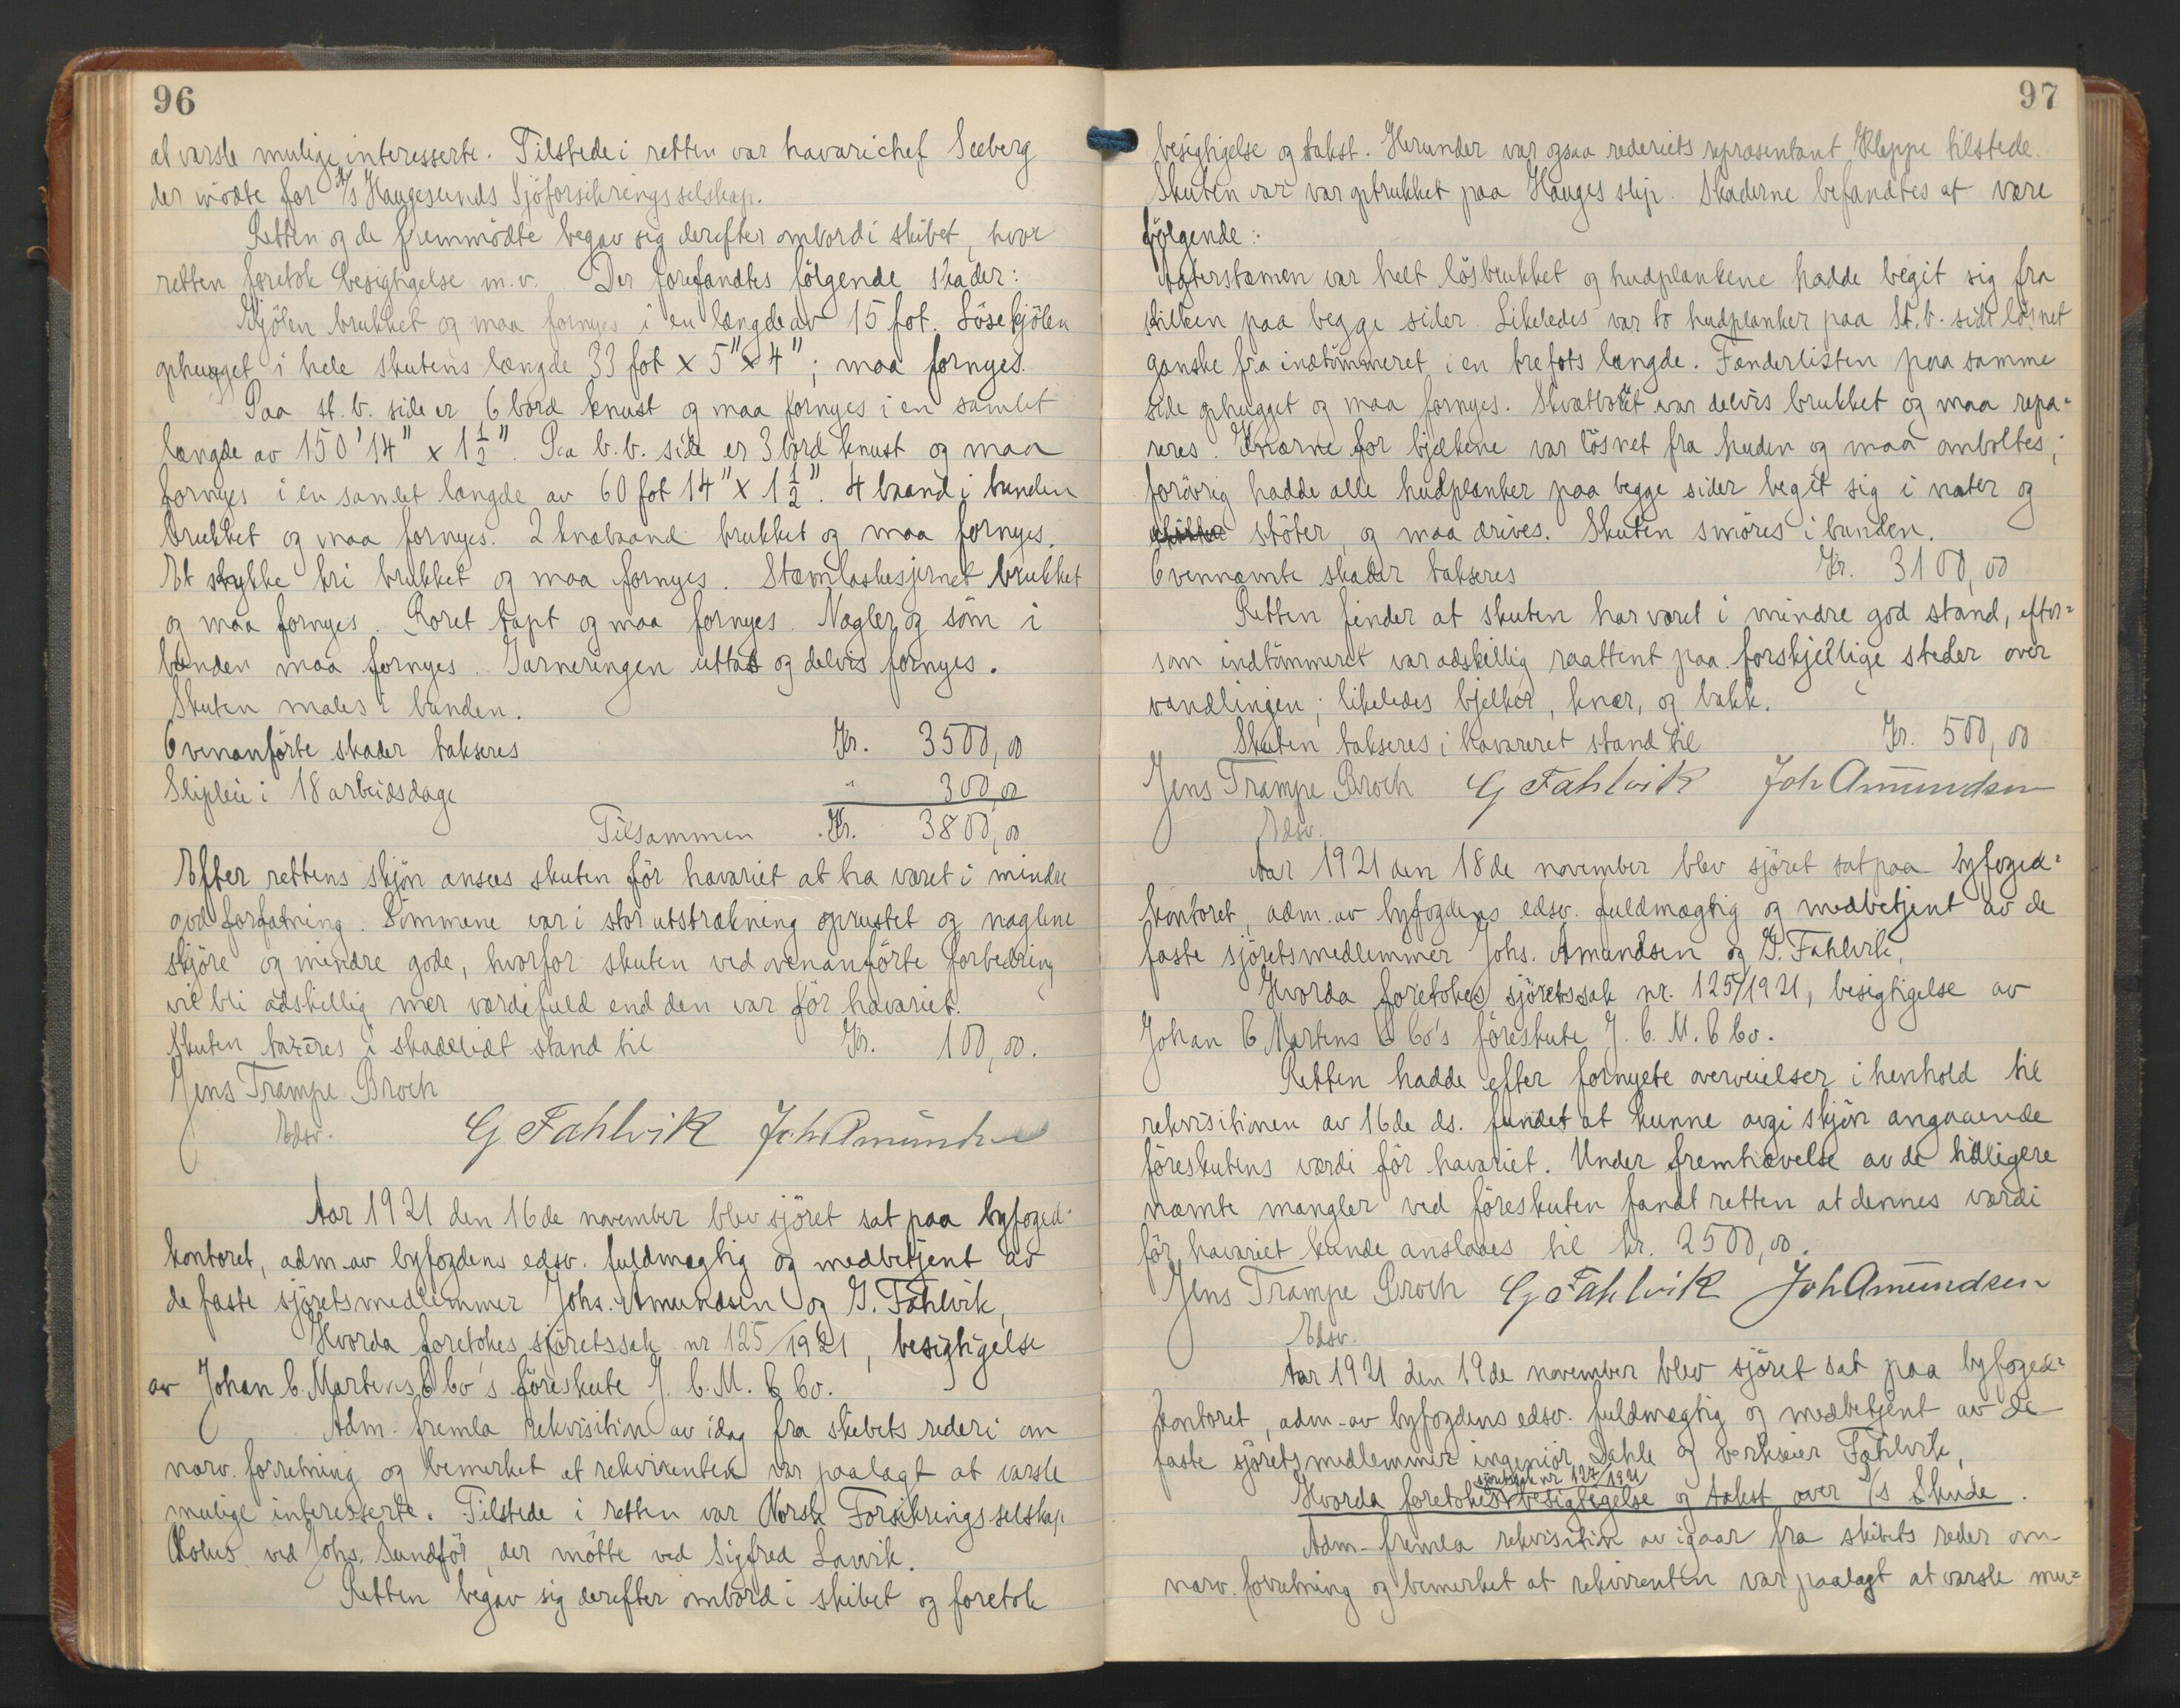 96
at varsle mulige interesserte. Tilstede i retten var havarichef Seeberg
der mödte for A/S Haugesunds Sjöforsikringsselskap.
Retten og de fremmödte begav sig derefter ombord i skibet, hvor
retten foretok besigtigelse m.v. Der forefandtes fölgende skader:
Kjölen brukket og maa fornyes i en længde av 15 fot. Lösekjölen
ophugget i hele skutens længde 33 fot x 5" x 4"; maa fornyes.
Paa st.b. side er 6 bord knust og maa fornyes i en samlet
længde av 150' 14" x 1 1/2". Paa b.b. side er 3 bord knust og maa
fornyes i en samlet længde av 60 fot 14" x 1 1/2". 4 baand i bunden
brukket og maa fornyes. 2 knæbaand brukket og maa fornyes.
Et stykke kri brukket og maa fornyes. Stævnlaskesjernet brukket
og maa fornyes. Roret tapt og maa fornyes. Nagler og söm i
bunden maa fornyes. Garneringen uttas og delvis fornyes.
Skuten males i bunden.
Ovenanförte skader takseres Kr. 3500,00
Slipleie i 18 arbeidsdage " 300,00
Tilsammen Kr. 3800,00
Efter rettens skjön ansees skuten för havariet at ha været i mindre
god forfatning. Sömmene var i stor utstrækning oprustet og naglene
skjöre og mindre gode, hvorfor skuten ved ovenanförte forbedring
vil bli adskillig mer værdifuld end den var för havariet.
Skuten taxeres i skadelidt stand til Kr. 100,00.
Jens Trampe Broch
Edsv. G Fahlvik Joh Amundsen
Aar 1921 den 16de november blev sjöret sat paa byfoged-
kontoret, adm. av byfogdens edsv. fuldmægtig og medbetjent av
de faste sjöretsmedlemmer Johs. Amundsen og G. Fahlvik,
Hvorda foretokes sjöretssak nr 125/1921, besigtigelse
av Johan C. Martens & Co's föreskute J. C. M. & Co.
Adm. fremla rekvisition av idag fra skibets rederi om
nærv. forretning og bemerket at rekvirenten var paalagt at varsle
mulige interesserte. Tilstede i retten var Norsk Forsikringsselskap
Æolus ved Johs. Sundför, der mötte ved Sigfred Lavik.
Retten begav sig derefter ombord i skibet og foretok
97
besigtigelse og takst. Herunder var ogsaa rederiets repræsentant Kleppe tilstede.
Skuten var var optrukket paa Hauges slip. Skaderne befandtes at være
fölgende:
Agterstævnen var helt lösbrukket og hudplankene hadde begit sig fra
stilken paa begge sider. Likeledes var to hudplanker paa St.b. side lösnet
ganske fra indtömmeret i en trefots længde. Fenderlisten paa samme
side ophugget og maa fornyes. Skvætbordet var delvis brukket og maa repa=
reres. Knærne for bjelkene var lösnet fra huden og maa omboltes;
forövrig hadde alle hudplanker paa begge sider begit sig i nater og
stöter, og maa drives. Skuten smöres i bunden.
Ovennævnte skader takseres Kr. 3100,00
Retten finder at skuten har været i mindre god stand, efter=
som indtömmeret var adskillig raattent paa forskjellige steder over
vandlinjen; likeledes bjelker, knær, og bakk.
Skuten takseres i havareret stand til Kr. 500,00
Jens Trampe Broch G Fahlvik Joh Amundsen
Edsv.
Aar 1921 den 18de november blev sjöret sat paa byfoged=
kontoret, adm. av byfogdens edsv. fuldmægtig og medbetjent av de
faste sjöretsmedlemmer Johs. Amundsen og G. Fahlvik,
Hvorda foretokes sjöretssak nr. 125/1921, besigtigelse av
Johan C Martens & Co's föreskute J. C. M. & Co.
Retten hadde efter fornyete overveielser i henhold til
rekvisitionen av 16de ds. fundet at kunne avgi skjön angaaende
föreskutens værdi för havariet. Under fremhævelse av de tidligere
nævnte mangler ved föreskuten fandt retten at dennes værdi
för havariet kunde anslaaes til kr. 2500,00.
Jens Trampe Broch G Fahlvik Joh Amundsen
Edsv.
Aar 1921 den 19de november blev sjöret sat paa byfoged=
kontoret, adm. av byfogdens edsv. fuldmægtig og medbetjent av de
faste sjöretsmedlemmer ingeniör Dahle og verkseier Fahlvik,
Hvorda foretokes sjöretssak nr 127/1921 besigtigelse og takst over D/S Skude.
Adm. fremla rekvisition av igaar fra skibets reder om
nærv. forretning og bemerket at rekvirenten var paalagt at varsle mu=